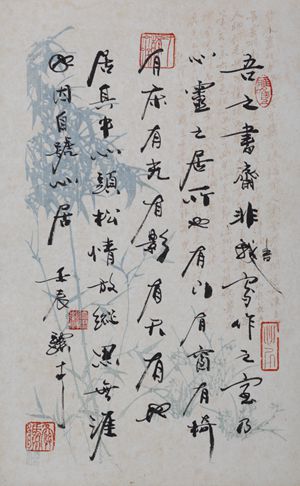 吾之書齋非我寫作之室乃
心靈之居所也有门有窗有椅
有床有光有影有天有地
居其中心頭松情放縱思無涯
因自心居 壬辰